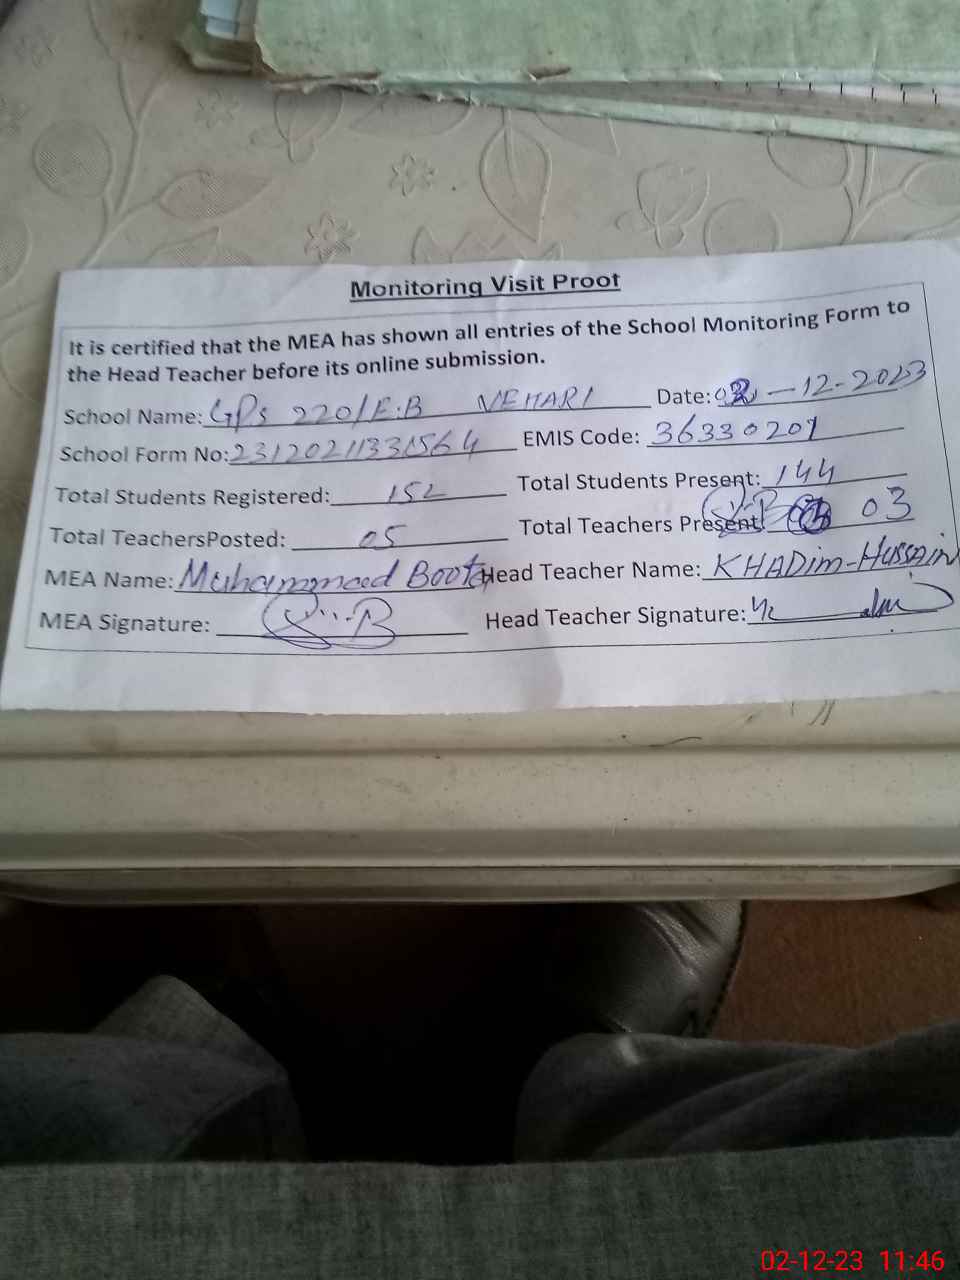 Monitoring Visit Proof
It is certified that the MEA has shown all entries of the School Monitoring Form to
the Head Teacher before its online submission.
School Name: GPS 220/E.B VEHARI Date: 02-12-2023
School Form No: EMIS Code: 36330201
Total Students Registered: 152 Total Students Present: 144
Total TeachersPosted: 05 Total Teachers Present: 03
MEA Name: Muhammad Boota Head Teacher Name: KHADim-HUSSAIN
MEA Signature: Head Teacher Signature:
02-12-23 11:46